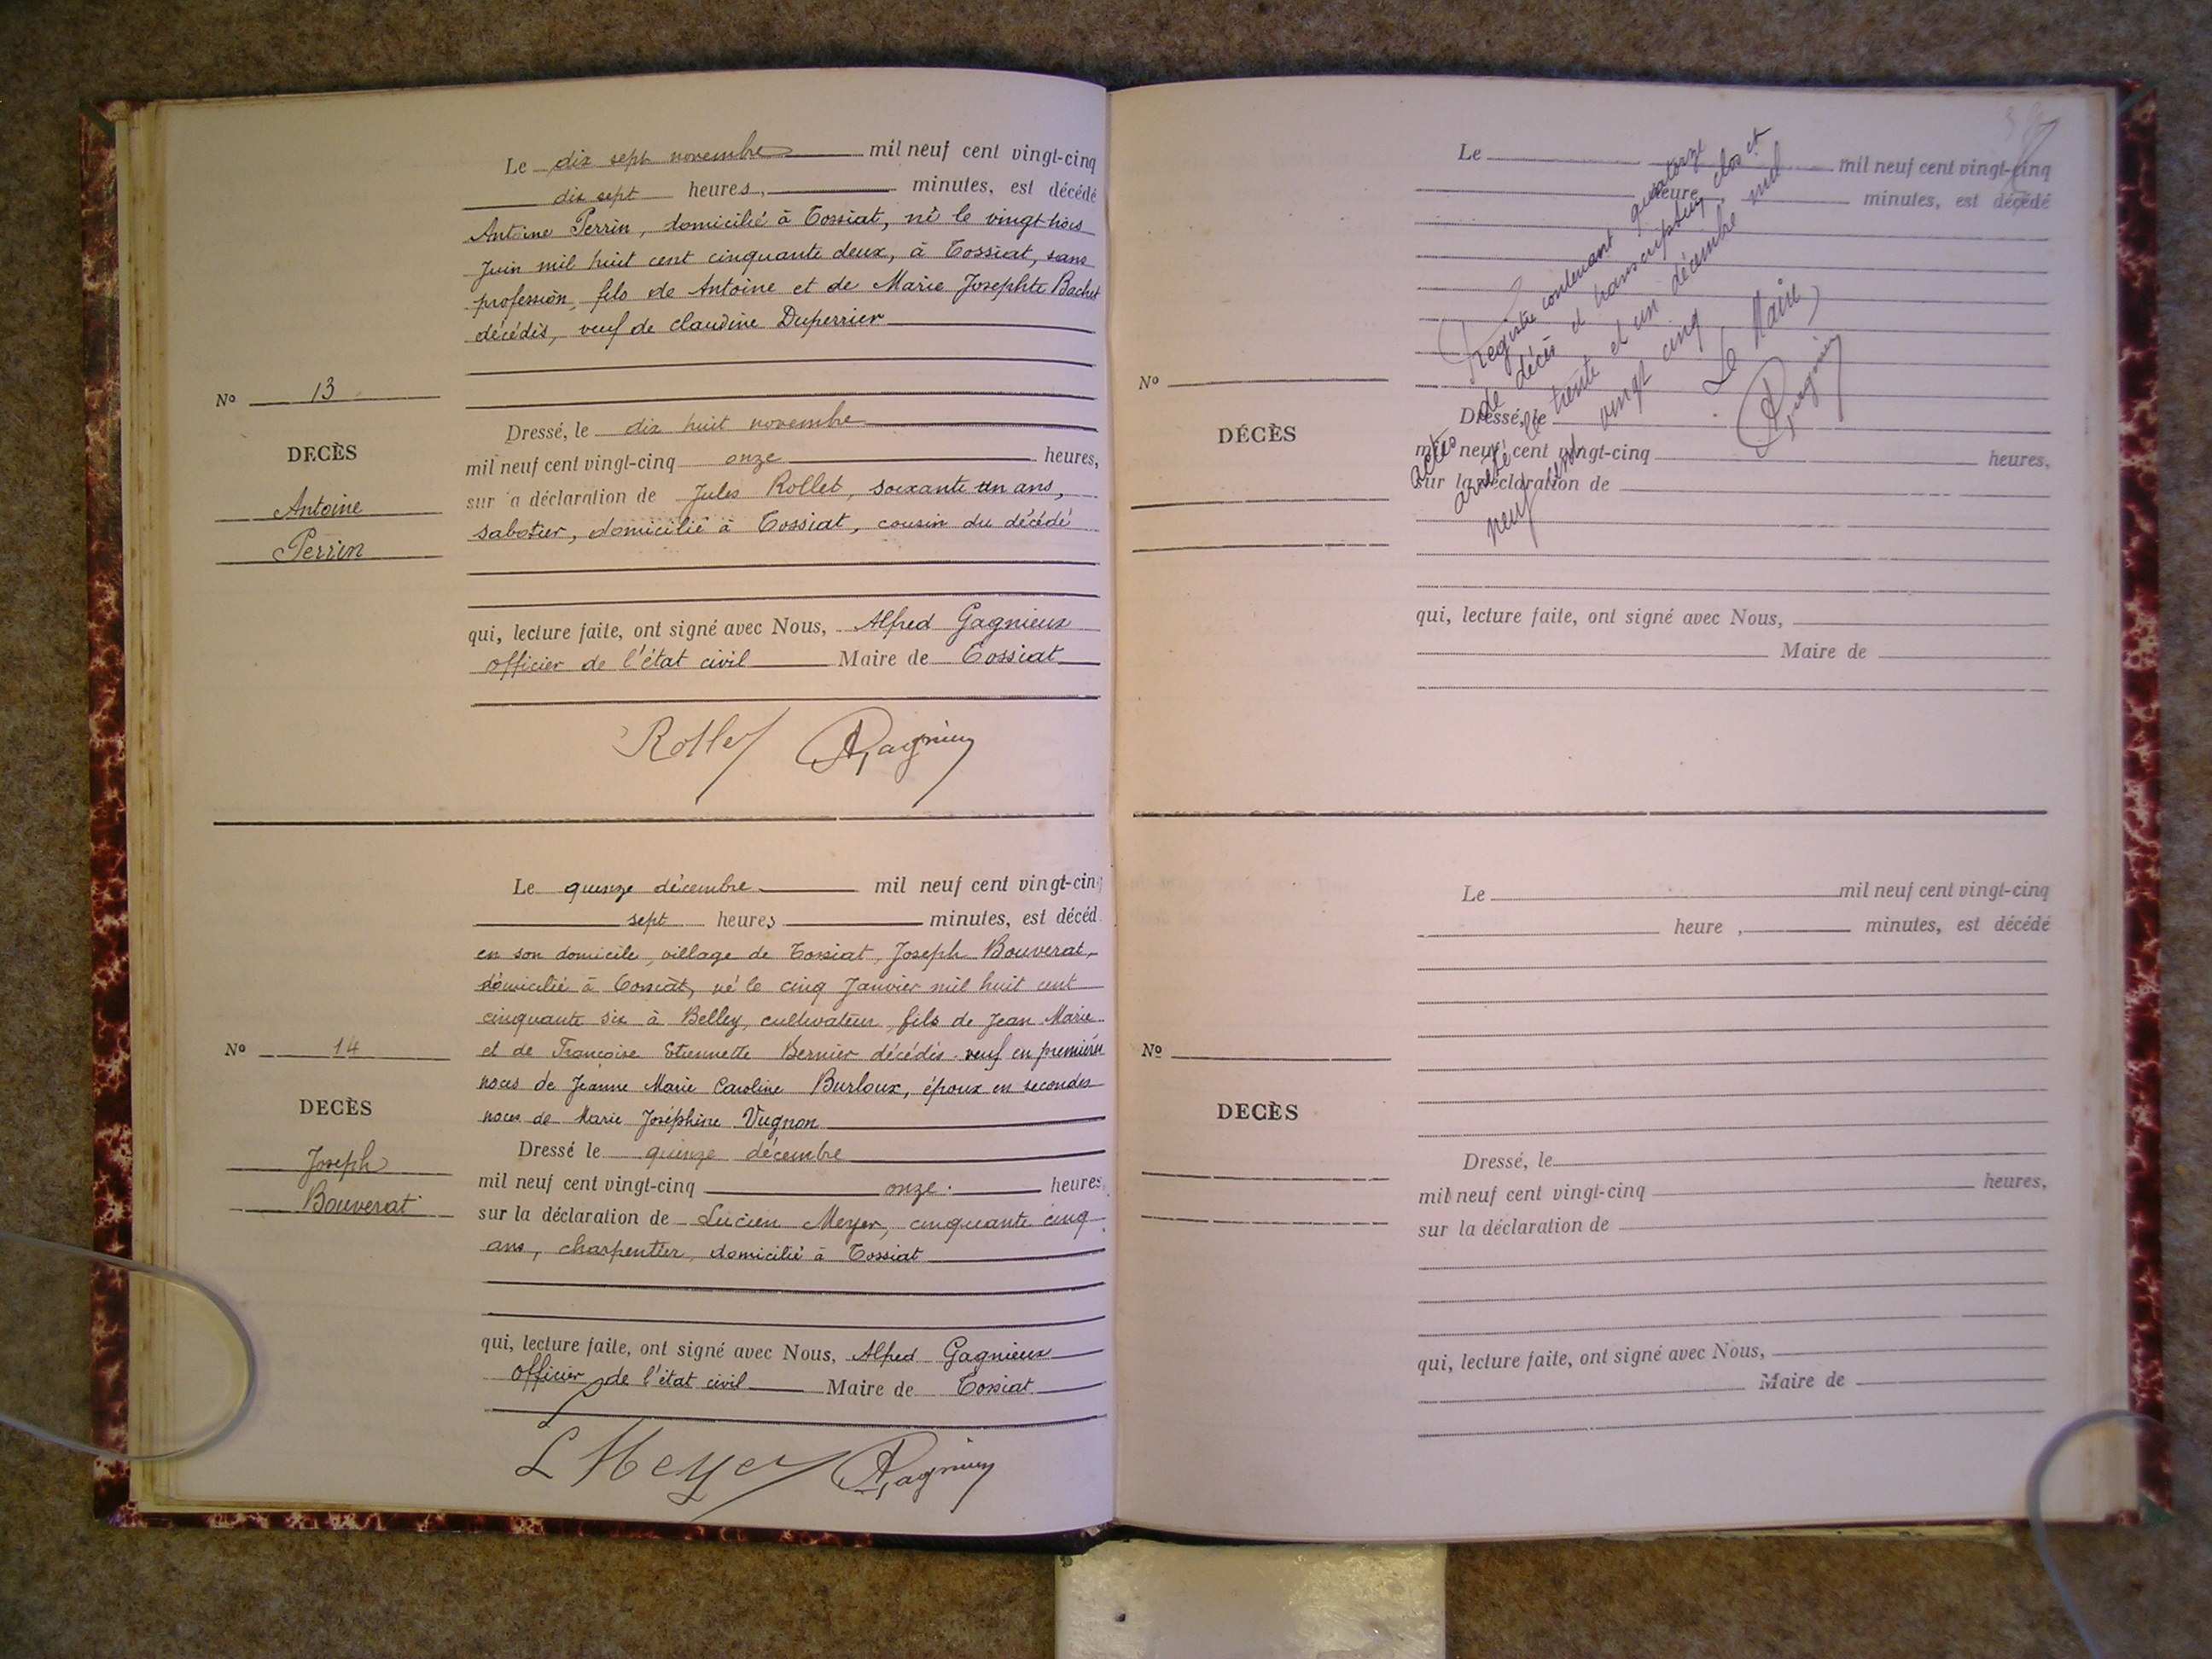 Le dix sept novembre mil neuf cent vingt-cinq
dix sept heures, minutes, est décédé
Antoine Perrin, domicilié à Tossiat, né le vingt trois
Juin mil huit cent cinquante deux, à Tossiat, sans
profession, fils de Antoine et de Marie Josephte Bachet
décédés, veuf de Claudine Duperrier
No 13
DECÈS
Antoine
Perrin
Dressé, le dix huit novembre
mil neuf cent vingt-cinq onze heures,
sur a déclaration de Jules Rollet, soixante un ans,
sabotier, domicilié à Tossiat, cousin du décédé
qui, lecture faite, ont signé avec Nous, Alfred Gagnieux
officier de l'état civil Maire de Tossiat
Rollet AGagnieux
Le quinze décembre mil neuf cent vingt-cinq
sept heures minutes, est décéd
en son domicile, village de Tossiat, Joseph Bouverat,
domicilié à Tossiat, né le cinq Janvier mil huit cent
cinquante six à Belley, cultivateur, fils de Jean Marie
et de Françoise Etiennette Bernier décédés. veuf en premières
noces de Jeanne Marie Caroline Burloux, époux en secondes
noces de Marie Joséphine Vugnon
No 14
DECÈS
Joseph
Bouverat
Dressé le quinze décembre
mil neuf cent vingt-cinq onze heures
sur la déclaration de Lucien Meyer, cinquante cinq
ans, charpentier, domicilié à Tossiat
qui, lecture faite, ont signé avec Nous, Alfred Gagnieux
officier de l'état civil Maire de Tossiat
L Meyer AGagnieux
Le mil neuf cent vingt-cinq
heure minutes, est décédé
Registre contenant quatorze
actes de décès et transcription clos et
arrêté le trente et un décembre mil
neuf cent vingt cinq
Le Maire,
AGagnieux
No
DÉCÈS
Dressé, le
mil neuf cent vingt-cinq heures,
sur la déclaration de
qui, lecture faite, ont signé avec Nous,
Maire de
Le mil neuf cent vingt-cinq
heure , minutes, est décédé
No
DECÈS
Dressé, le
mil neuf cent vingt-cinq heures,
sur la déclaration de
qui, lecture faite, ont signé avec Nous,
Maire de